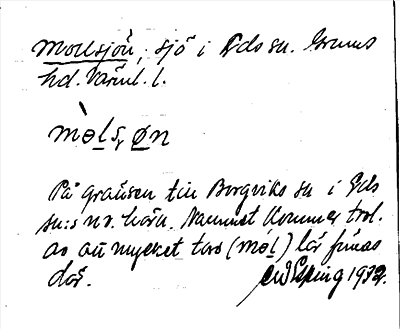 Mollsjön, sjö i Eds sn. Grums
hd. Värml. l.
mòlsøn
På gränsen till Borgviks sn i Eds
sn:s nv. hörn. Namnet kommer trol.
av att mycket tors (mól) lär finnas
där. 1932.